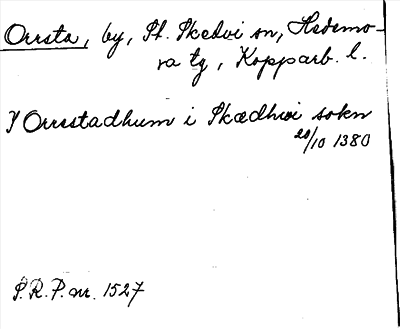 Orrsta, by, St. Skedvi sn, Hedemo-
ra tg, Kopparb. l.
J Orrstadhum i Skædhwi sokn
20/10 1380
S.R.P. nr. 1527